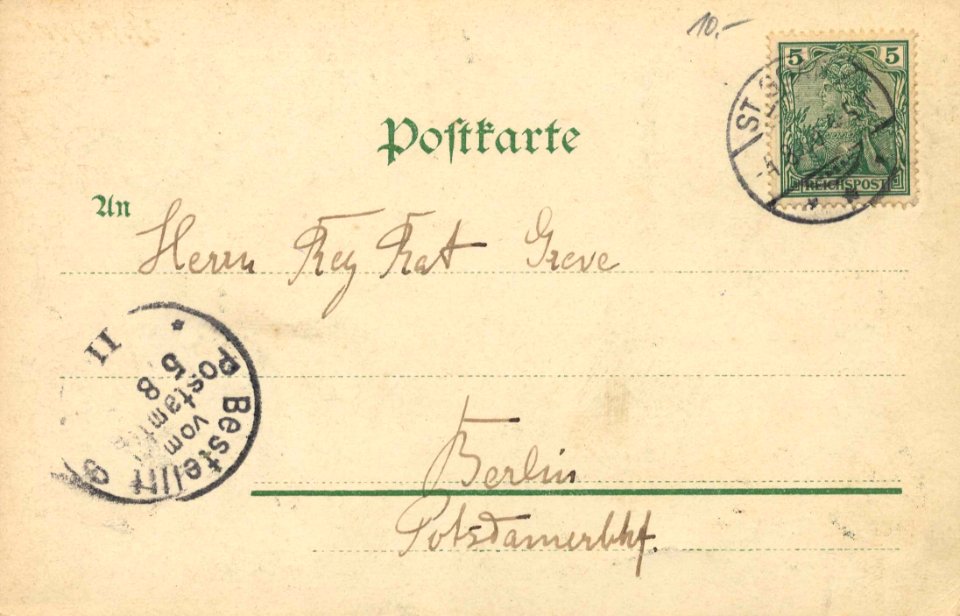 10.-
5 5
ST.
REICHSPOST
Postkarte
An
Herrn Reg Rat Greve
Bestellt
vom
Postamte
9
5 8
II
Berlin
Potsdamerbhf.